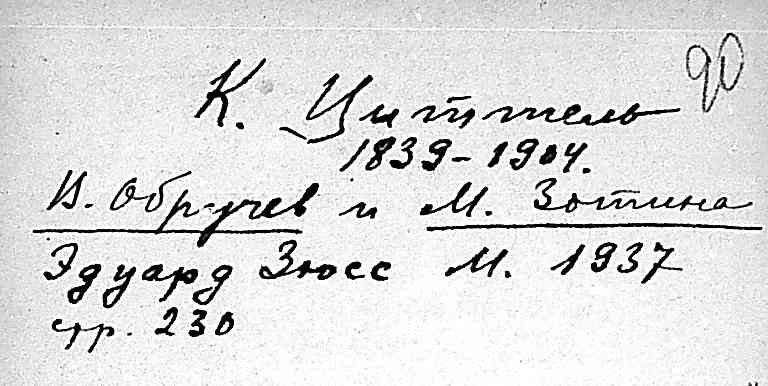 90
К. Циттель
1839-1904.
В. Обручев и М. Зотина
Эдуард Зюсс М. 1937
стр. 230